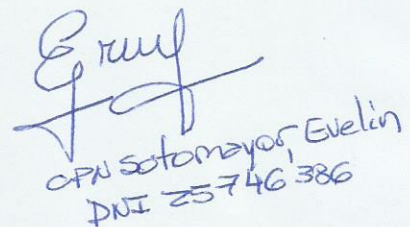 CPN Sotomayor, Evelin
DNI 25746386